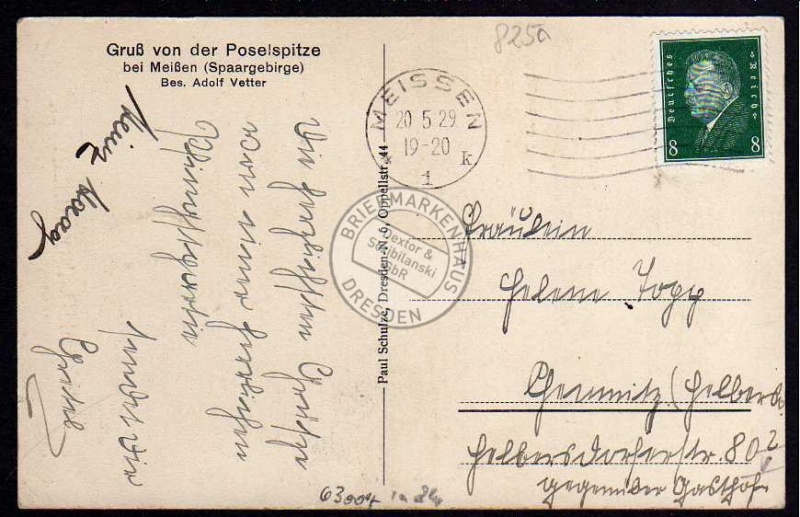 Gruß von der Poselspitze
bei Meißen (Spaargebirge)
Bes. Adolf Vetter
825a
MEISSEN
20 5.29
19-20
* 1 k
Deutsches Reich
8 8
Heinz Haag
Die herzlichsten Grüße
von einer herrlichen
Pfingst
sendet Dir
Paul Schulze, Dresden-N. 6, Oppellstr. 44
BRIEFMARKENHAUS
Textor &
Stolbilanski
GbR
DRESDEN
Fräulein
Helene Topp
Chemnitz (Helbers
Helbersdorferstr. 80 2
gegenüber Gasthof